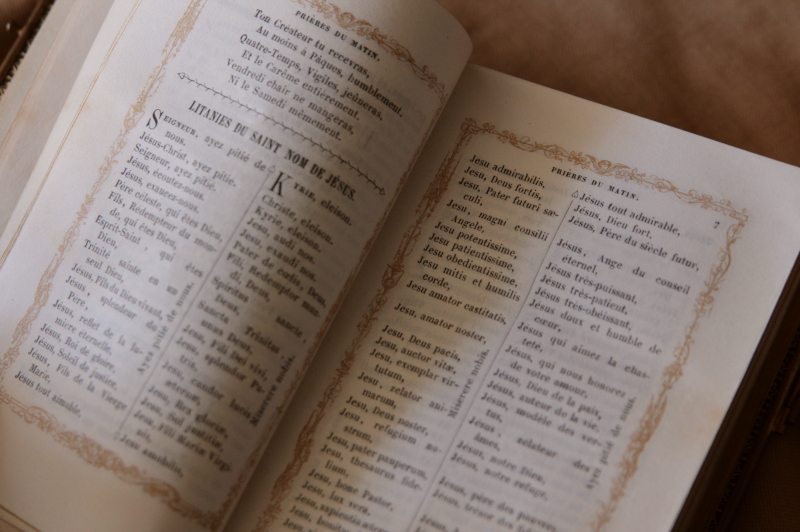 PRIÈRES DU MATIN.
Ton Créateur tu recevras,
Au moins à Pâques, humblement.
Quatre-Temps, Vigiles, jeûneras,
Et le Carême entièrement.
Vendredi chair ne mangeras,
Ni le Samedi mêmement.
LITANIES DU SAINT NOM DE JÉSUS.
SEIGNEUR, ayez pitié de
nous.
Jésus-Christ, ayez pitié.
Seigneur, ayez pitié.
Jésus, écoutez-nous.
Jésus, exaucez-nous.
Père céleste, qui êtes Dieu,
Fils, Rédempteur du mon-
de, qui êtes Dieu,
Esprit-Saint, qui êtes
Dieu,
Trinité sainte en un
seul Dieu,
Jésus, Fils du Dieu vivant,
Jésus, splendeur du
Père,
Jésus, reflet de la lu-
mière éternelle,
Jésus, Roi de gloire,
Jésus, Soleil de justice,
Jésus, Fils de la Vierge
Marie,
Jésus tout aimable,
Ayez pitié de nous.
KYRIE, eleison.
Christe, eleison.
Kyrie, eleison.
Jesu, audi nos.
Jesu, exaudi nos.
Pater de cœlis, Deus,
Fili, Redemptor mun-
di, Deus,
Spiritus sancte,
Deus,
Sancta Trinitas
unus Deus,
Jesu, Fili Dei vivi,
Jesu, splendor Pa-
tris,
Jesu, candor lucis
æternæ,
Jesu, Rex gloriæ,
Jesu, Sol justitiæ,
Jesu, Fili Mariæ Virgi-
nis,
Jesu amabilis,
Miserere nobis.
PRIÈRES DU MATIN.
7
Jesu admirabilis,
Jesu, Deus fortis,
Jesu, Pater futuri sæ-
culi,
Jesu, magni consilii
Angele,
Jesu potentissime,
Jesu patientissime,
Jesu obedientissime,
Jesu mitis et humilis
corde,
Jesu amator castitatis,
Jesu, amator noster,
Jesu, Deus pacis,
Jesu, auctor vitæ,
Jesu, exemplar vir-
tutum,
Jesu, zelator ani-
marum,
Jesu, Deus noster,
Jesu, refugium no-
strum,
Jesu, pater pauperum,
Jesu, thesaurus fide-
lium,
Jesu, bone Pastor,
Jesu, lux vera,
Jesu, sapientia æterna,
Jesu, bonitas
Miserere nobis.
Jésus tout admirable,
Jésus, Dieu fort,
Jésus, Père du siècle futur,
Jésus, Ange du conseil
éternel,
Jésus très-puissant,
Jésus très-patient,
Jésus très-obéissant,
Jésus doux et humble de
cœur,
Jésus qui aimez la chas-
teté,
Jésus, qui nous honorez
de votre amour,
Jésus, Dieu de la paix,
Jésus, auteur de la vie,
Jésus, modèle des ver-
tus,
Jésus, zélateur des
âmes,
Jésus, notre Dieu,
Jésus, notre refuge,
Jésus, père des pauvres,
Jésus, trésor des
Ayez pitié de nous.